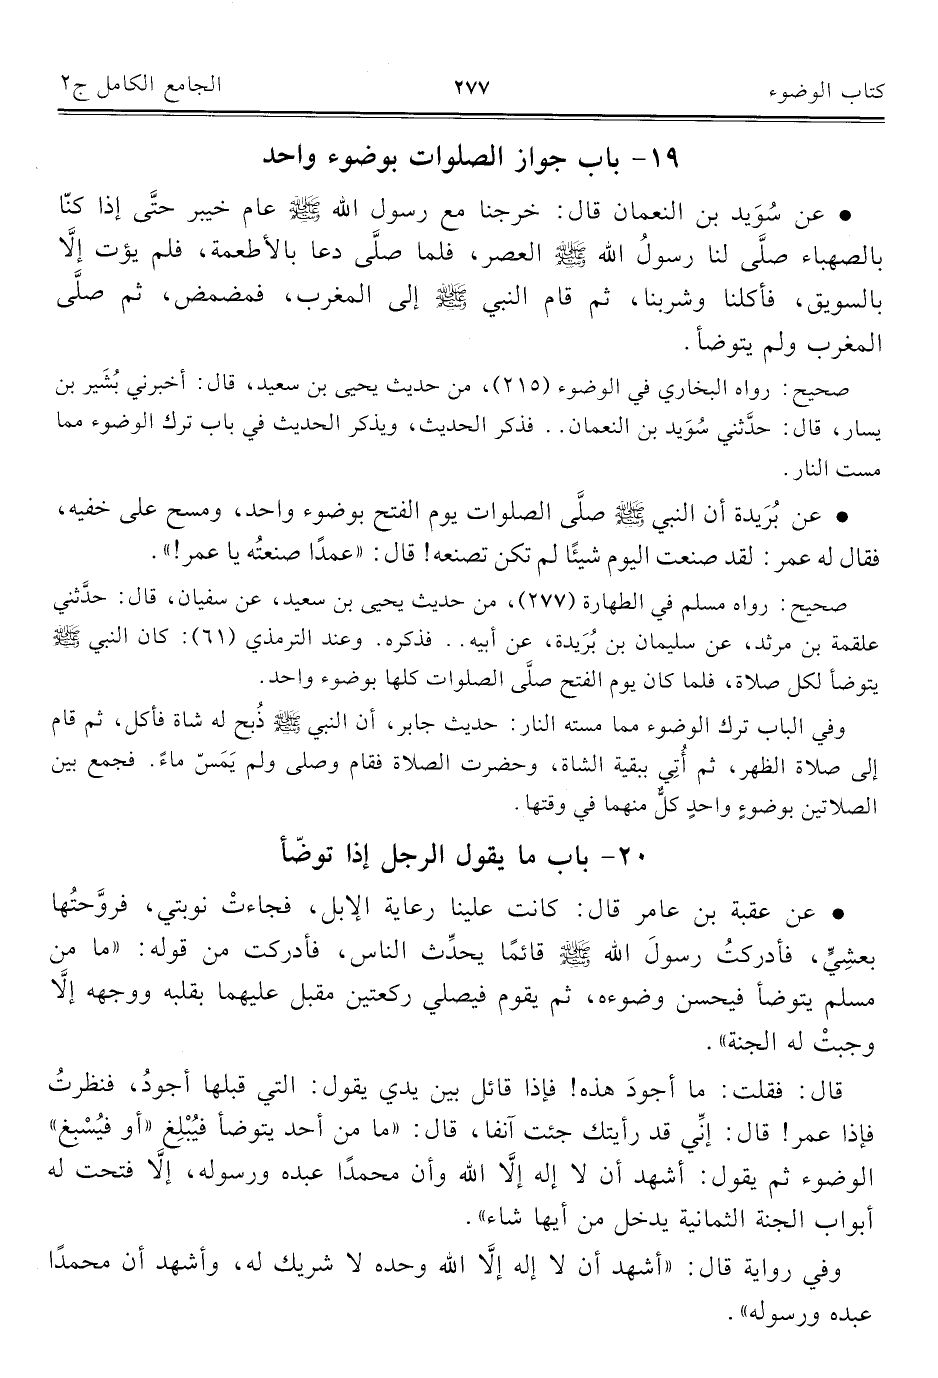 كتاب الوضوء ٢٧٧ الجامع الكامل ج٢
١٩- باب جواز الصلوات بوضوء واحد
• عن سُوَيد بن النعمان قال: خرجنا مع رسول الله ﷺ عام خيبر حتَّى إذا كنّا
بالصهباء صلَّى لنا رسولُ الله ﷺ العصر، فلما صلَّى دعا بالأطعمة، فلم يؤت إلَّا
بالسويق، فأكلنا وشربنا، ثم قام النبي ﷺ إلى المغرب، فمضمض، ثم صلَّى
المغرب ولم يتوضأ.
صحيح: رواه البخاري في الوضوء (٢١٥)، من حديث يحيى بن سعيد، قال: أخبرني بُشَير بن
يسار، قال: حدَّثني سُوَيد بن النعمان.. فذكر الحديث، ويذكر الحديث في باب ترك الوضوء مما
مست النار.
• عن بُرَيدة أن النبي ﷺ صلَّى الصلوات يوم الفتح بوضوء واحد، ومسح على خفيه،
فقال له عمر: لقد صنعت اليوم شيئًا لم تكن تصنعه! قال: «عمدًا صنعتُه يا عمر!».
صحيح: رواه مسلم في الطهارة (٢٧٧)، من حديث يحيى بن سعيد، عن سفيان، قال: حدَّثني
علقمة بن مرثد، عن سليمان بن بُرَيدة، عن أبيه.. فذكره. وعند الترمذي (٦١): كان النبي ﷺ
يتوضأ لكل صلاة، فلما كان يوم الفتح صلَّى الصلوات كلها بوضوء واحد.
وفي الباب ترك الوضوء مما مسته النار: حديث جابر، أن النبي ﷺ ذُبح له شاة فأكل، ثم قام
إلى صلاة الظهر، ثم أُتِي ببقية الشاة، وحضرت الصلاة فقام وصلى ولم يَمَسّ ماءً. فجمع بين
الصلاتين بوضوءٍ واحدٍ كلٌّ منهما في وقتها.
٢٠- باب ما يقول الرجل إذا توضّأ
• عن عقبة بن عامر قال: كانت علينا رعاية الإبل، فجاءتْ نوبتي، فروَّحتُها
بعشِيٍّ، فأدركتُ رسولَ الله ﷺ قائمًا يحدِّث الناس، فأدركت من قوله: «ما من
مسلم يتوضأ فيحسن وضوءه، ثم يقوم فيصلي ركعتين مقبل عليهما بقلبه ووجهه إلَّا
وجبتْ له الجنة».
قال: فقلت: ما أجودَ هذه! فإذا قائل بين يدي يقول: التي قبلها أجودُ، فنظرتُ
فإذا عمر! قال: إنِّي قد رأيتك جئت آنفا، قال: «ما من أحد يتوضأ فيُبْلِغ «أو فيُسْبِغ»
الوضوء ثم يقول: أشهد أن لا إله إلَّا الله وأن محمدًا عبده ورسوله، إلَّا فتحت له
أبواب الجنة الثمانية يدخل من أيها شاء».
وفي رواية قال: «أشهد أن لا إله إلَّا الله وحده لا شريك له، وأشهد أن محمدًا
عبده ورسوله».